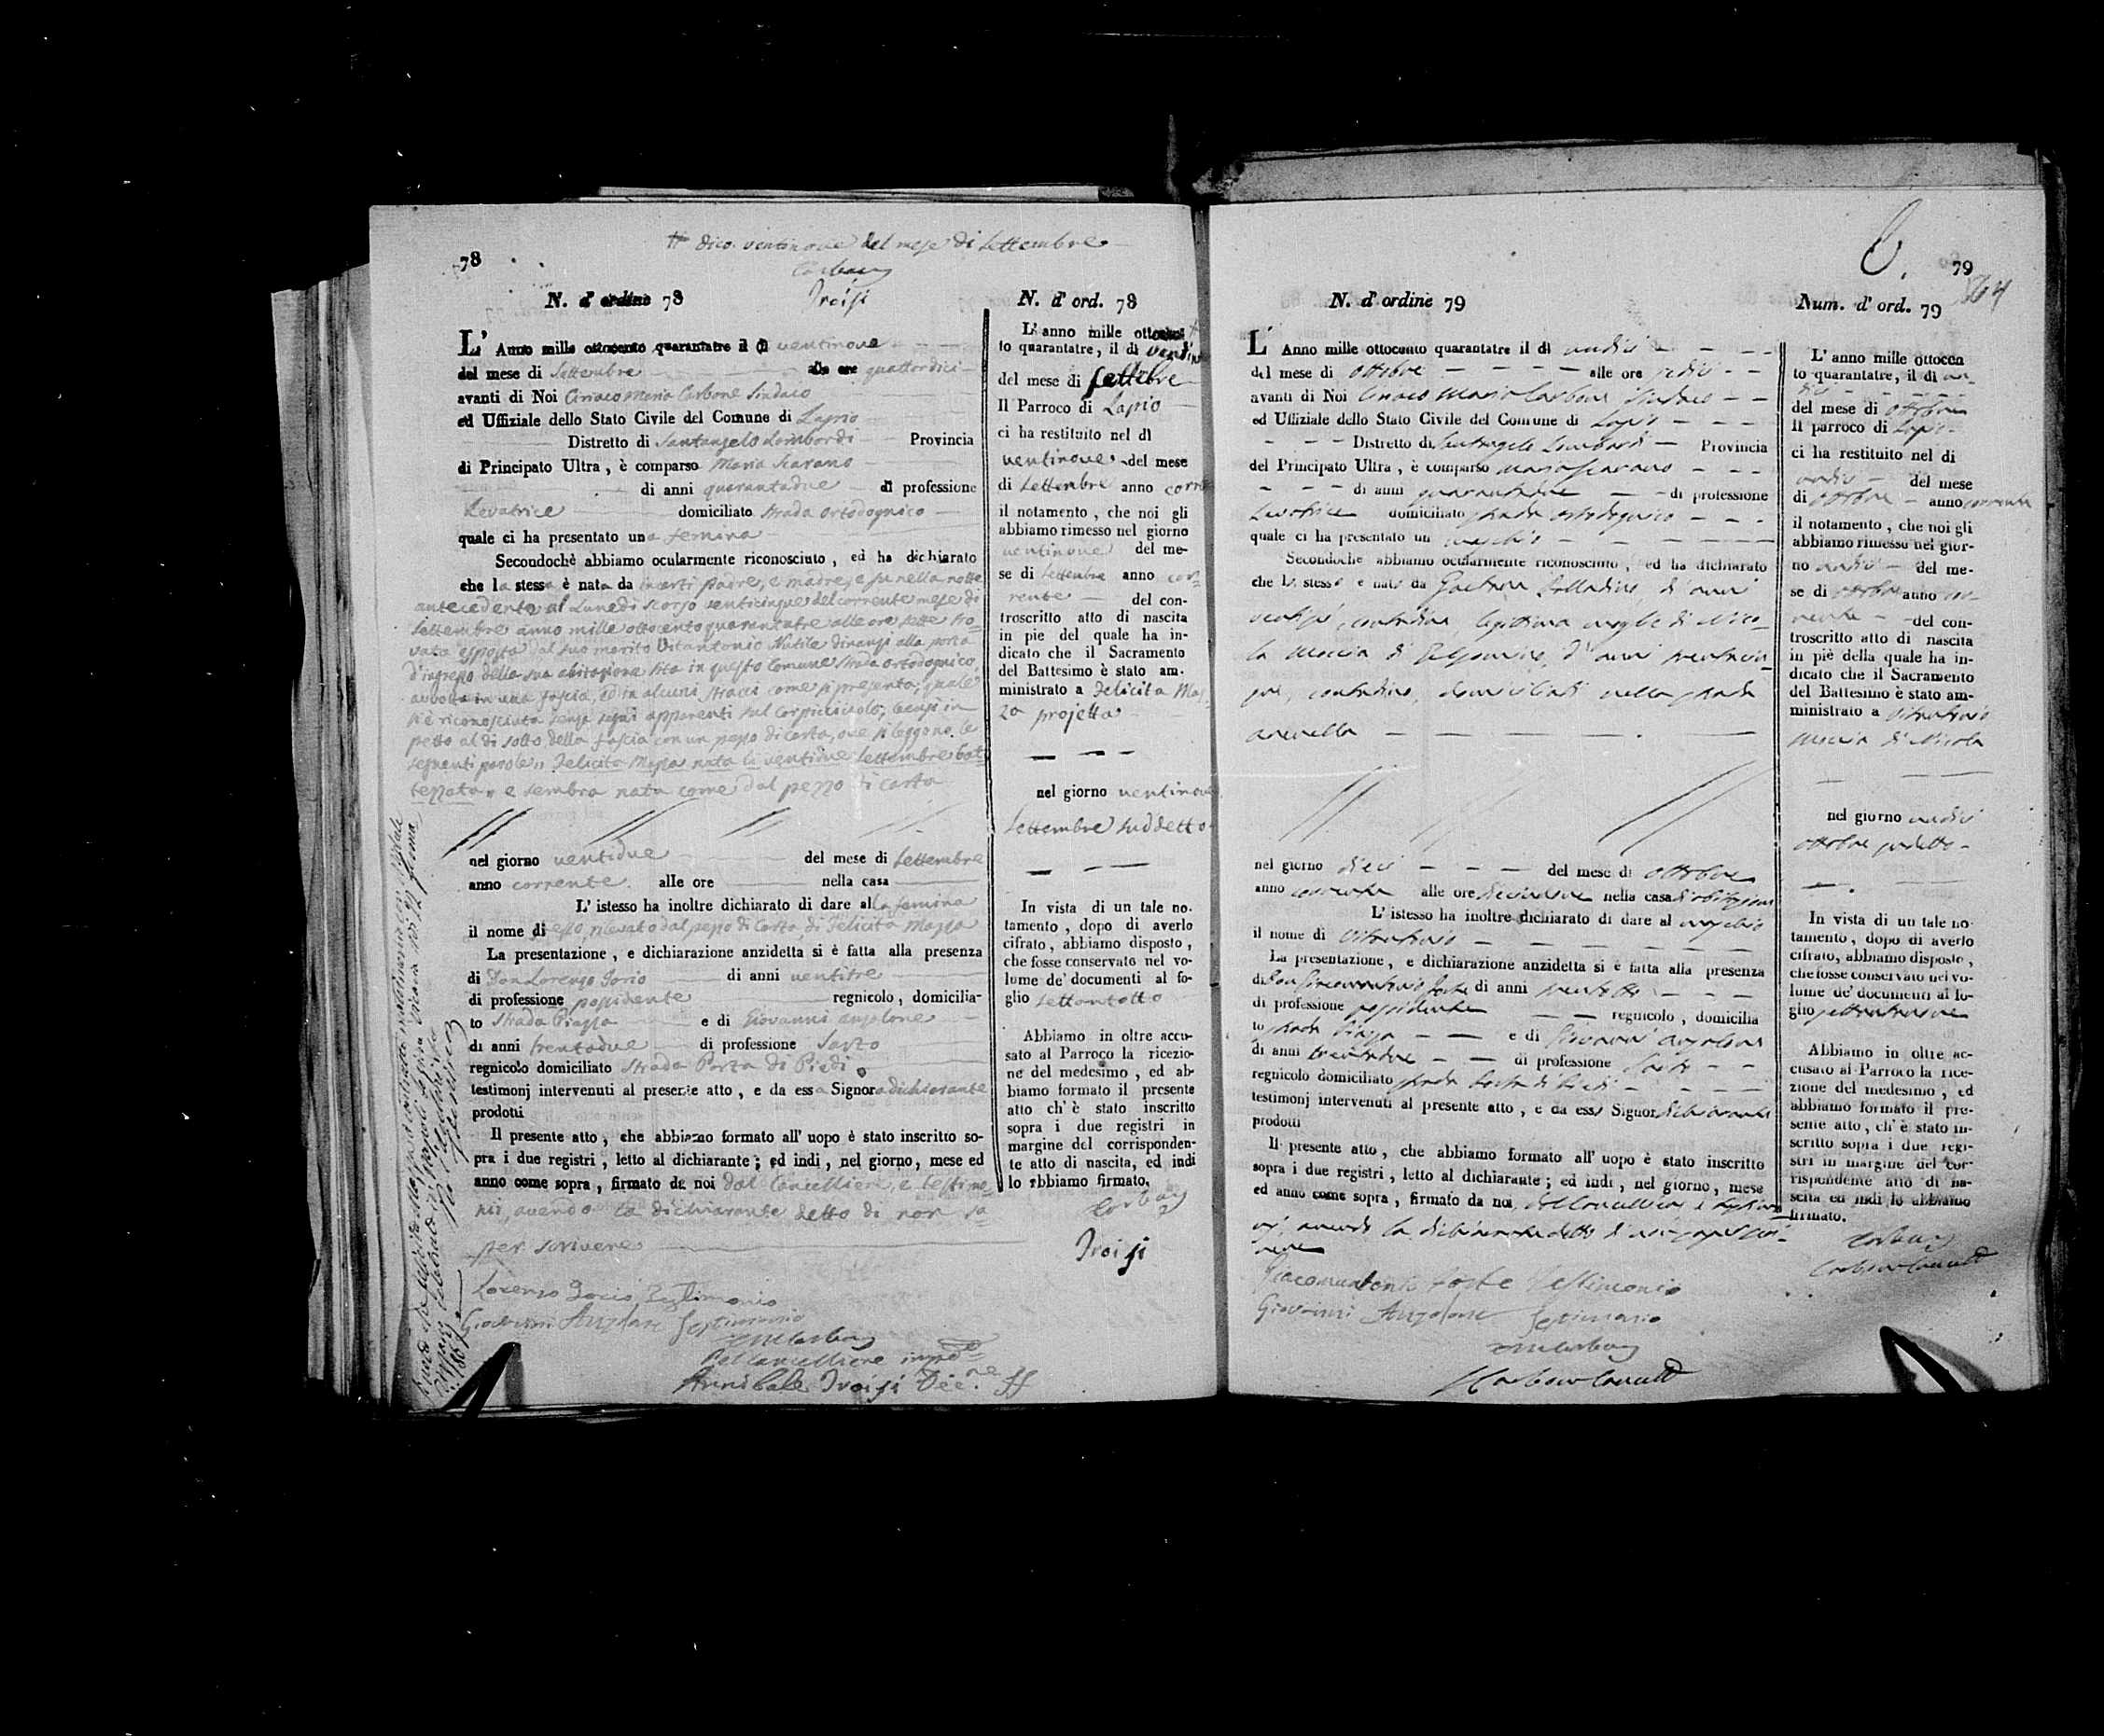 # dico ventinove del mese di Settembre
Carbone
Troisi
78
N. d' ordine 78
L' Anno mille ottocento quarantatre il dì ventinove
del mese di Settembre alle ore quattordici
avanti di Noi Ciriaco Maria Carbone Sindaco
ed Uffiziale dello Stato Civile del Comune di Lapio
Distretto di Santangelo Lombardi Provincia
di Principato Ultra, è comparso Maria Scarano
di anni quarantadue di professione
Levatrice domiciliato Strada Ortodognico
quale ci ha presentato una femina
Secondochè abbiamo ocularmente riconosciuto, ed ha dichiarato
che la stessa è nata da incerti padre, e madre, e fu nella notte
antecedente al Lunedì scorso venticinque del corrente mese di
Settembre anno mille ottocento quarantatre alle ore sette tro-
vata esposta dal suo marito Vitantonio Nutile dinanzi alla porta
d'ingresso della sua abitazione sita in questo Comune strada ortodognico,
avvolta in una fascia, ed in alcuni stracci come si presenta, quale
si è riconosciuta senza segni apparenti sul corpicciuolo, bensì in
petto al di sotto della fascia con un pezzo di carta, ove si leggono le
seguenti parole „ Felicita Mazza nata li ventidue Settembre bat-
tezzata „ e sembra nata come dal pezzo di carta
nel giorno ventidue del mese di Settembre
anno corrente alle ore nella casa
L' istesso ha inoltre dichiarato di dare alla femina
il nome di esso, rilevato dal pezzo di carta, di Felicita Mazza
La presentazione, e dichiarazione anzidetta si è fatta alla presenza
di Don Lorenzo Iorio di anni ventitre
di professione possidente regnicolo, domicilia-
to Strada Piazza e di Giovanni Anzolone
di anni trentadue di professione Sarto
regnicolo domiciliato Strada Porta di Piedi
testimonj intervenuti al presente atto, e da essa Signora dichiarante
prodotti
Il presente atto, che abbiamo formato all' uopo è stato inscritto so-
pra i due registri, letto al dichiarante; ed indi, nel giorno, mese ed
anno come sopra, firmato da noi dal Cancelliere, e testimo-
nii, avendo la dichiarante detto di non sa-
per scrivere
Lorenzo Iorio Testimonio
Giovanni Anzolone Testimonio
CMCarbone
Pel Cancelliere imped.
Annibale Troisi Dec.ne ff
N. d' ord. 78
L' anno mille ottocen
to quarantatre, il dì
del mese di Settembre
Il Parroco di Lapio
ci ha restituito nel dì
ventinove del mese
di Settembre anno corre
il notamento, che noi gli
abbiamo rimesso nel giorno
ventinove del me-
se di Settembre anno cor-
rente del con-
troscritto atto di nascita
in piè del quale ha in-
dicato che il Sacramento
del Battesimo è stato am-
ministrato a Felicita Maz-
za projetta
nel giorno ventinove
Settembre suddetto
In vista di un tale no-
tamento, dopo di averlo
cifrato, abbiamo disposto,
che fosse conservato nel vo-
lume de' documenti al fo-
glio settantotto
Abbiamo in oltre accu-
sato al Parroco la ricezio-
ne del medesimo, ed ab-
biamo formato il presente
atto ch' è stato inscritto
sopra i due registri in
margine del corrisponden-
te atto di nascita, ed indi
lo abbiamo firmato.
Carbone
Troisi
79
64
N. d' ordine 79
L' Anno mille ottocento quarantatre il dì undici
del mese di Ottobre alle ore sedici
avanti di Noi Ciriaco Maria Carbone Sindaco
ed Uffiziale dello Stato Civile del Comune di Lapio
Distretto di Santangelo Lombardi Provincia
del Principato Ultra, è comparso Maria Scarano
di anni quarantadue di professione
Levatrice domiciliato strada ortodognico
quale ci ha presentato un maschio
Secondochè abbiamo ocularmente riconosciuto, ed ha dichiarato
che lo stesso è nato da Gaetana Colladino, di anni
ventisei, contadina, legittima moglie di Nico-
la Moccia di Gelsomino, d' anni trentacin-
que, contadino, domiciliati nella strada
nel giorno dieci del mese di ottobre
anno corrente alle ore diecinove nella casa di abitazione
L' istesso ha inoltre dichiarato di dare al maschio
il nome di Vitantonio
La presentazione, e dichiarazione anzidetta si è fatta alla presenza
di Don Giacomantonio Forte di anni trentotto
di professione possidente regnicolo, domicilia
to strada Piazza e di Giovanni Anzolone
di anni trentadue di professione Sarto
regnicolo domiciliato strada Porta di Piedi
testimonj intervenuti al presente atto, e da essa Signora dichiarante
prodotti
Il presente atto, che abbiamo formato all' uopo è stato inscritto
sopra i due registri, letto al dichiarante; ed indi, nel giorno, mese
ed anno come sopra, firmato da noi, dal Cancelliere e testimo-
nj, avendo la dichiarante detto di non saper scri-
vere
Giacomantonio Forte Testimonio
Giovanni Anzolone Testimonio
CMCarbone
Carbone Cancell.
Num. d' ord. 79
L' anno mille ottocen
to quarantatre, il di un-
dici
del mese di Ottobre
Il parroco di Lapio
ci ha restituito nel di
undici del mese
di ottobre anno corrente
il notamento, che noi gli
abbiamo rimesso nel gior-
no undici del me-
se di ottobre anno cor-
rente del con-
troscritto atto di nascita
in piè della quale ha in-
dicato che il Sacramento
del Battesimo è stato am-
ministrato a Vitantonio
Moccia di Nicola
nel giorno undici
ottobre sudetto
In vista di un tale no-
tamento, dopo di averlo
cifrato, abbiamo disposto,
che fosse conservato nel vo-
lume de' documenti al fo-
glio settantanove
Abbiamo in oltre ac-
cusato al Parroco la rice-
zione del medesimo, ed
abbiamo formato il pre-
sente atto, ch' è stato in-
scritto sopra i due regi-
stri in margine del cor-
rispondente atto di na-
scita ed indi lo abbiamo
firmato.
Carbone
Carbone Cancell.